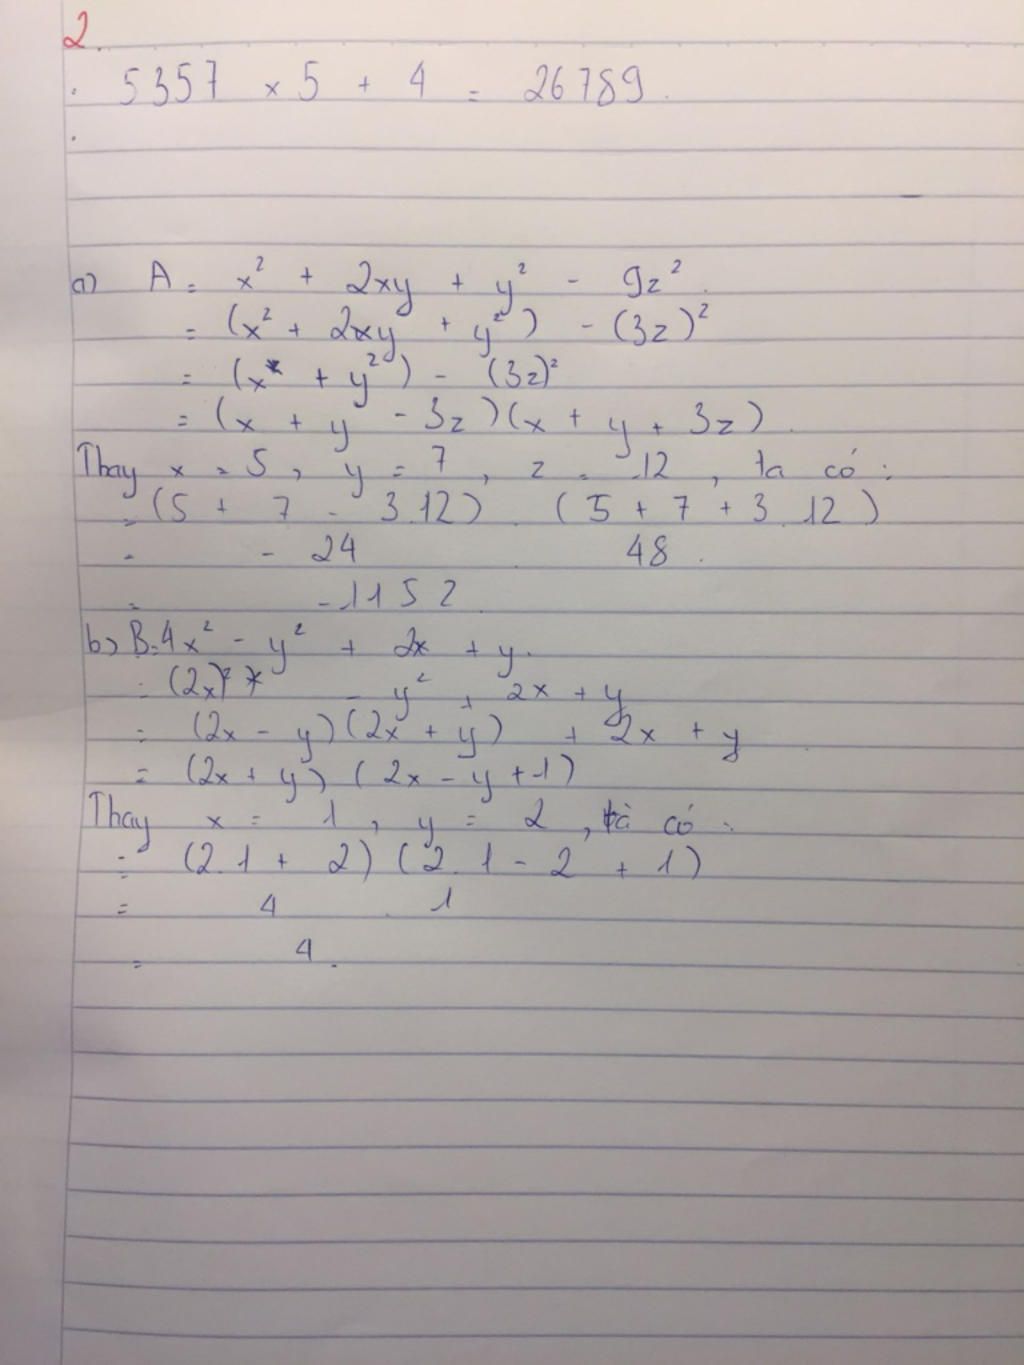 2.
5357 × 5 + 4 = 26789.
a) A = x² + 2xy + y² - 9z².
= (x² + 2xy + y²) - (3z)²
= (x + y²) - (3z)²
= (x + y - 3z)(x + y + 3z).
Thay x = 5, y = 7, z = 12, ta có:
= (5 + 7 - 3.12) . (5 + 7 + 3.12)
= -24 . 48.
= -1152.
b) B = 4x² - y² + 2x + y.
= (2x)² - y² + 2x + y
= (2x - y)(2x + y) + 2x + y
= (2x + y)(2x - y + 1)
Thay x = 1, y = 2, ta có:
= (2.1 + 2)(2.1 - 2 + 1)
= 4 . 1
= 4.